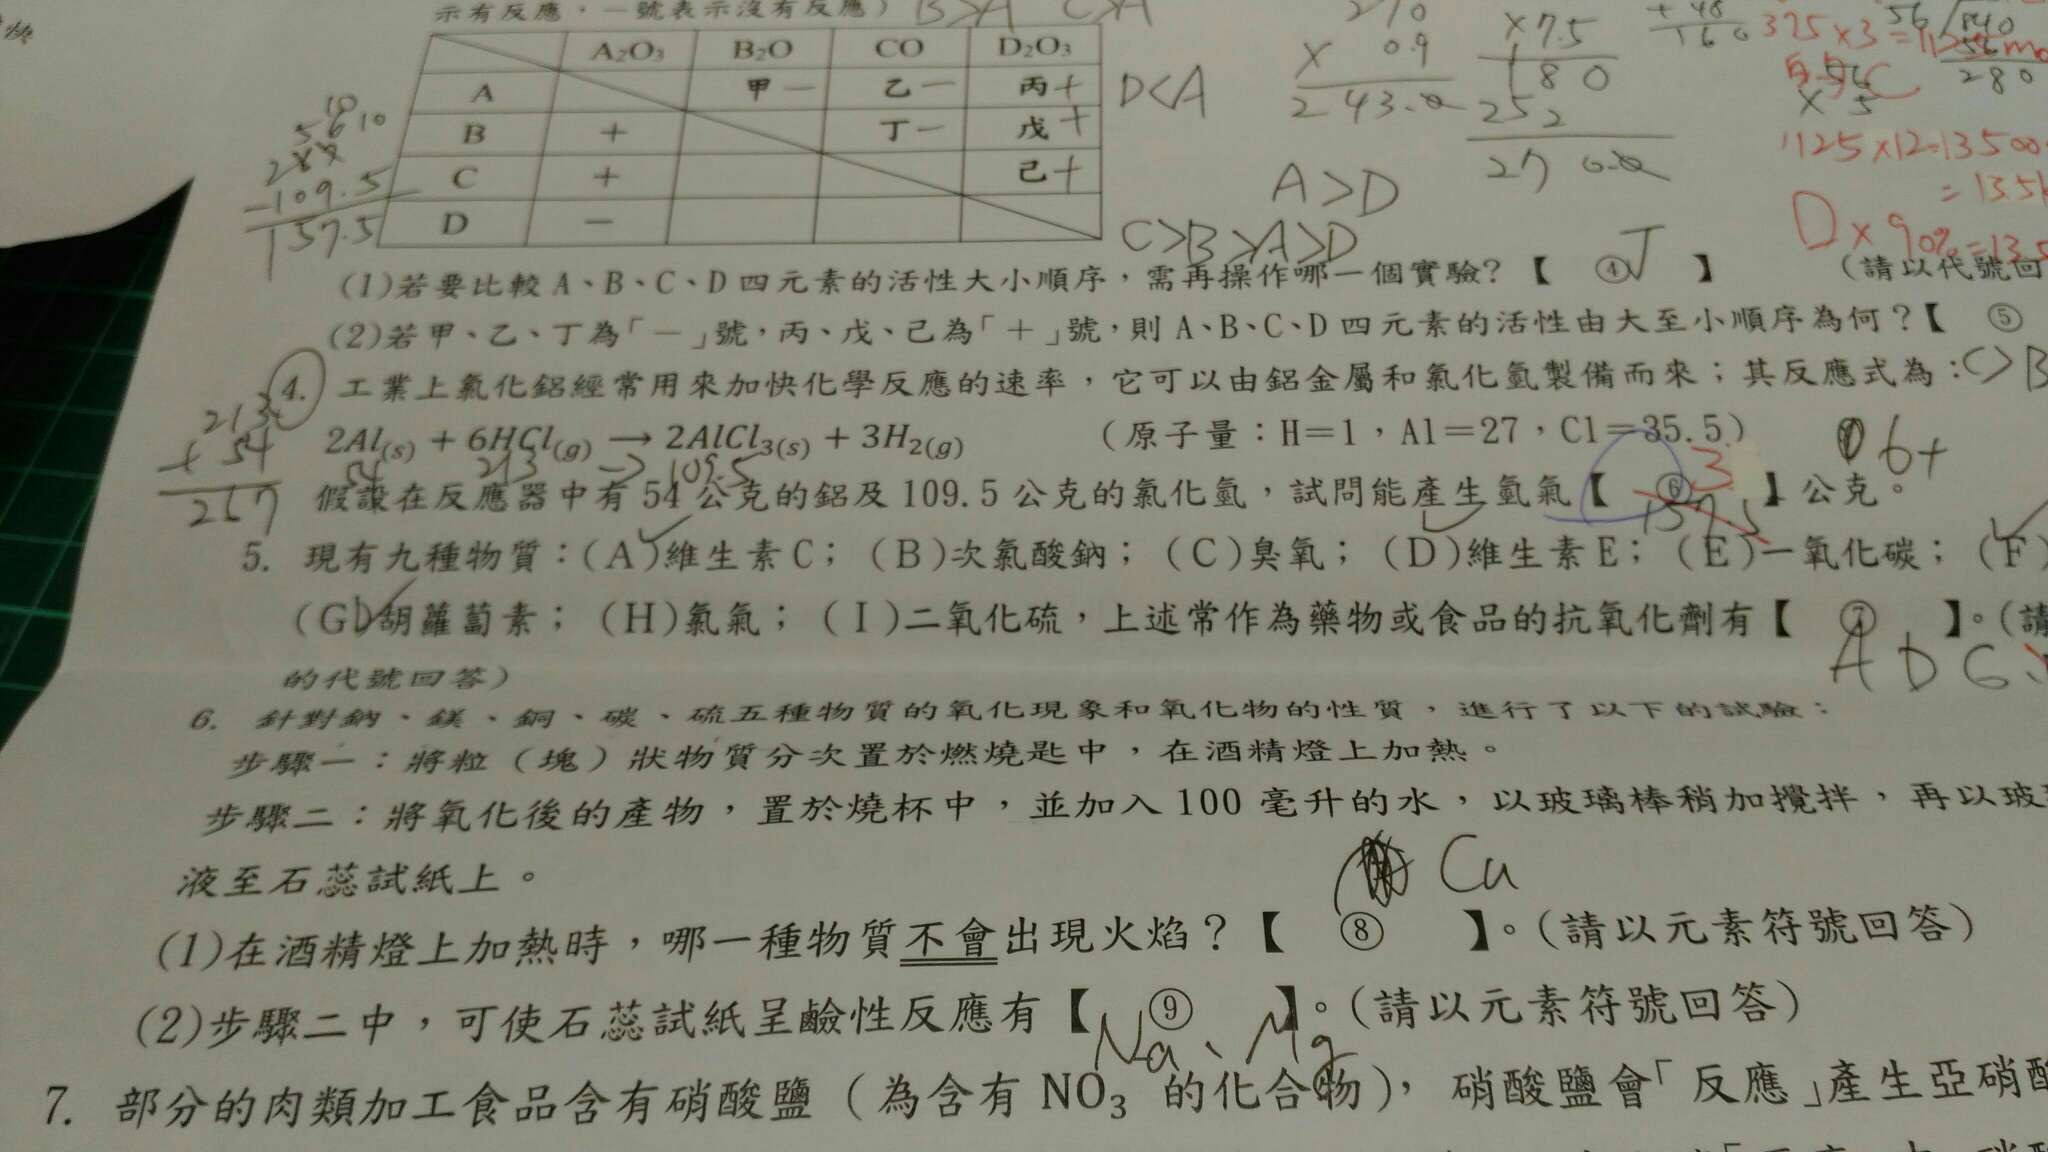 示有反應，－號表示沒有反應） B>A C>A
A₂O₃ B₂O CO D₂O₃
A 甲 － 乙 － 丙 + D<A
B + 丁 － 戊 +
C + 己 +
D －
210
× 0.9
243.0
×7.5
180
252
270.0
+48
160
375×3=
56
840
280
× 5
1125×12=13500
=13.5
D×90%=13.5
A>D
C>B>A>D
10
56 10
-109.5
157.5
(1)若要比較 A、B、C、D 四元素的活性大小順序，需再操作哪一個實驗?【 ④ 丁 】 （請以代號回
(2)若甲、乙、丁為「－」號，丙、戊、己為「＋」號，則 A、B、C、D 四元素的活性由大至小順序為何？【 ⑤
4. 工業上氯化鋁經常用來加快化學反應的速率，它可以由鋁金屬和氯化氫製備而來；其反應式為： C>B
2Al(s) + 6HCl(g) → 2AlCl₃(s) + 3H₂(g) （原子量：H=1，Al=27，Cl=35.5）
213
+ 54
267
54 213 → 109.5
6+
假設在反應器中有 54 公克的鋁及 109.5 公克的氯化氫，試問能產生氫氣【 ⑥ 】公克。
3
157.5
5. 現有九種物質：(A)維生素 C；(B)次氯酸鈉；(C)臭氧；(D)維生素 E；(E)一氧化碳；(F)
(G)胡蘿蔔素；(H)氯氣；(I)二氧化硫，上述常作為藥物或食品的抗氧化劑有【 ⑦ 】。（請
A D G
的代號回答）
6. 針對鈉、鎂、銅、碳、硫五種物質的氧化現象和氧化物的性質，進行了以下的試驗：
步驟一：將粒（塊）狀物質分次置於燃燒匙中，在酒精燈上加熱。
步驟二：將氧化後的產物，置於燒杯中，並加入 100 毫升的水，以玻璃棒稍加攪拌，再以玻
液至石蕊試紙上。
Cu
(1)在酒精燈上加熱時，哪一種物質不會出現火焰？【 ⑧ 】。（請以元素符號回答）
(2)步驟二中，可使石蕊試紙呈鹼性反應有【 ⑨ 】。（請以元素符號回答）
Na、Mg
7. 部分的肉類加工食品含有硝酸鹽（為含有 NO₃ 的化合物），硝酸鹽會「反應」產生亞硝酸